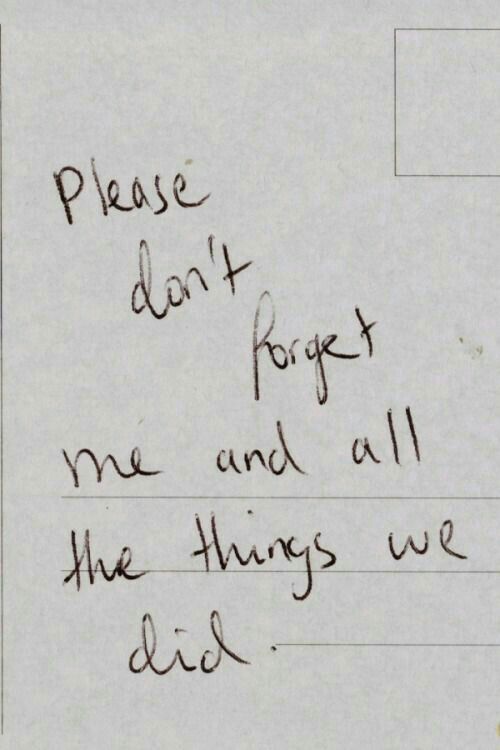 Please
don't
forget
me and all
the things we
did.